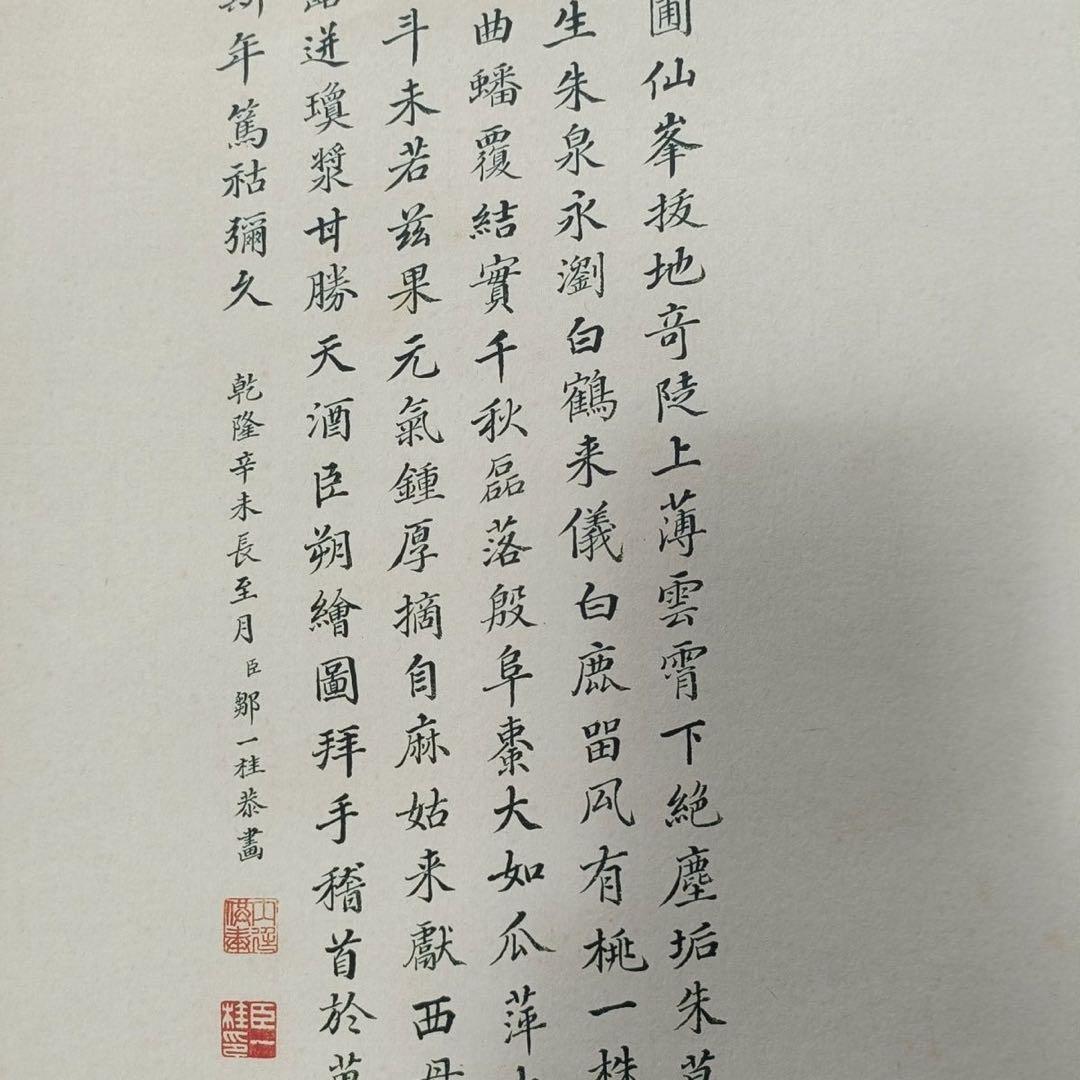 圃仙峯拔地奇陡上薄雲霄下絕塵垢朱草
生朱泉永瀏白鶴来儀白鹿畱风有桃一株
曲蟠覆結實千秋磊落殷阜棗大如瓜萍
斗未若茲果元氣鍾厚摘自麻姑来獻西母
迸瓊漿甘勝天酒臣朔繪圖拜手稽首於萬
斯年篤祜彌久
乾隆辛未長至月臣鄒一桂恭畫
臣一桂印